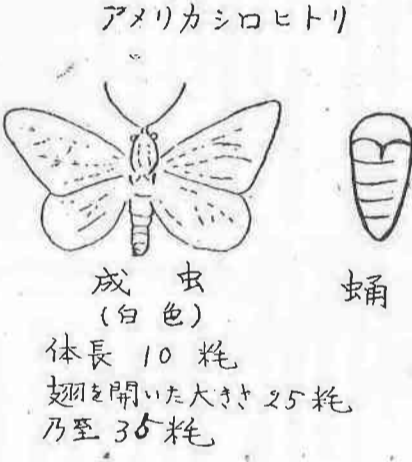 アメリカシロヒトリ
成虫
(白色)
蛹
体長 10 粍
翅を開いた大きさ 25 粍
乃至 35 粍